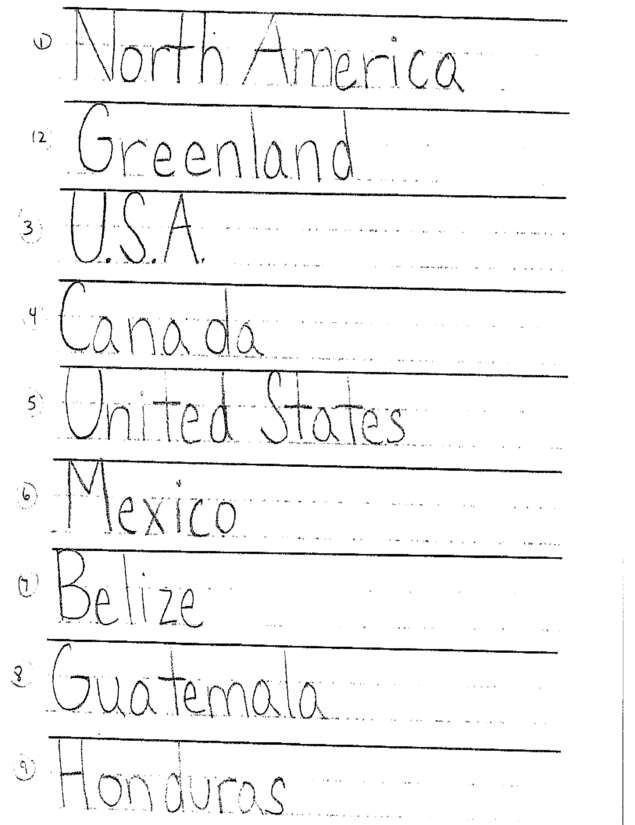 1 North America
12 Greenland
3 U.S.A.
4 Canada
5 United States
6 Mexico
7 Belize
8 Guatemala
9 Honduras